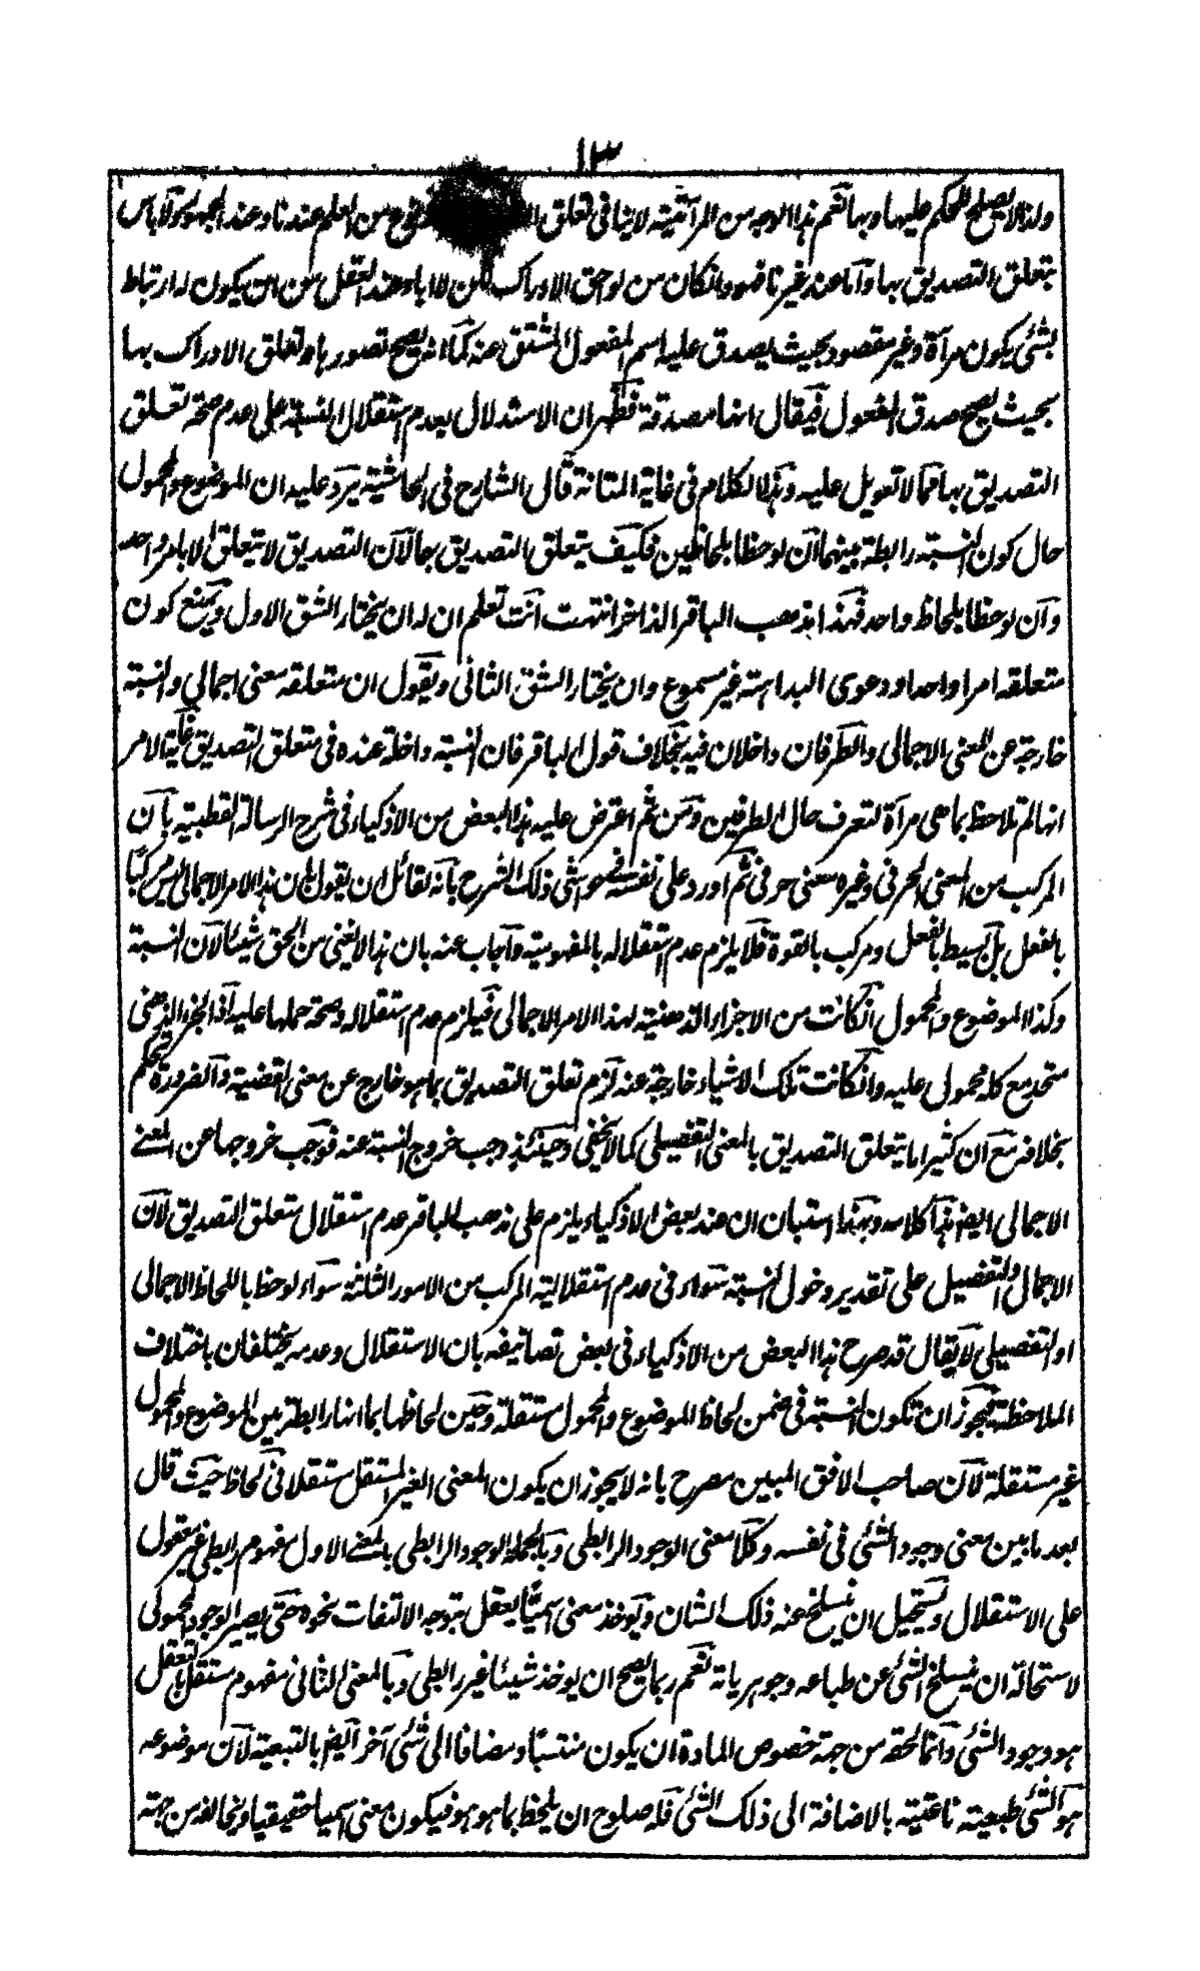 ١٣
ولذا لا يصلح للحكم عليها وبها نعم هذا الوجه من المرآتية لا ينافى تعلق نوع من العلم عندنا وعند الجمهور ولا باس
بتعلق التصديق بها واما عند غيرنا فهو وانكان من لواحق الادراك لكن لا اباء عند العقل من ان يكون له ارتباط
بشئ يكون مرآة وغير مقصود بحيث يصدق عليه اسم المفعول المشتق عنه كما انه يصح تصورها وتعلق الادراك بها
بحيث يصح صدق المفعول فيقال انها مصدقة فظهر ان الاستدلال بعدم استقلال النسبة على عدم صحة تعلق
التصديق بها مما لا تعويل عليه وهذا الكلام فى غاية المتانة قال الشارح فى الحاشية يرد عليه ان الموضوع والمحمول
حال كون النسبة رابطة بينهما ان لوحظا بلحاظين فكيف يتعلق التصديق بهما لان التصديق لا يتعلق الا بامر واحد
وان لوحظا بلحاظ واحد فهذا مذهب الباقر الذاخر انتهت انت تعلم ان له ان يختار الشق الاول ويمنع كون
متعلقه امرا واحدا ودعوى البداهة غير مسموع وان يختار الشق الثانى ويقول ان متعلقه معنى اجمالي والنسبة
خارجة عن المعنى الاجمالى والطرفان داخلان فيه بخلاف قول الباقر فان النسبة داخلة عنده فى متعلق التصديق غاية الامر
انها لم تلاحظ بما هى مرآة لتعرف حال الطرفين ومن ثم اعترض عليه هذا البعض من الاذكياء فى شرح الرسالة القطبية بان
المركب من المعنى الحرفى وغيره معنى حرفى ثم اورد على نفسه فى حواشى ذلك الشرح بانه لقائل ان يقول بان هذا الامر الاجمالى ليس مركبا
بالفعل بل بسيط بالفعل ومركب بالقوة فلا يلزم عدم استقلاله بالمفهومية واجاب عنه بان هذا لا يغنى من الحق شيئا لان النسبة
وكذا الموضوع والمحمول انكانت من الاجزاء الذهنية لهذا الامر الاجمالى فيلزم عدم استقلاله وصحة حملها عليه اذ الجزء الذهنى
متحد مع كله محمول عليه وانكانت تلك الاشياء خارجة عنه لزم تعلق التصديق بما هو خارج عن معنى القضية والضرورة تحكم
بخلافه مع ان كثيرا ما يتعلق التصديق بالمعنى التفصيلى كما لا يخفى وحينئذ وجب خروج النسبة عنه فوجب خروجها عن المعنے
الاجمالى ايضا هذا كلامه وبهذا استبان ان عند بعض الاذكياء يلزم على مذهب الباقر عدم استقلال متعلق التصديق لان
الاجمال والتفصيل على تقدير دخول النسبة سواء فى عدم استقلالية المركب من الامور الثلثة سواء لوحظ باللحاظ الاجمالى
او التفصيلى لا يقال قد صرح هذا البعض من الاذكياء فى بعض تصانيفه بان الاستقلال وعدمه يختلفان باختلاف
الملاحظة فيجوز ان تكون النسبة فى ضمن لحاظ الموضوع والمحمول مستقلة وحين لحاظها بما انها رابطة بين الموضوع والمحمول
غير مستقلة لان صاحب الافق المبين مصرح بانه لا يجوز ان يكون المعنى الغير المستقل مستقلا فى لحاظ حيث قال
بعد ما بين معنى وجود الشئ فى نفسه وكلا معنى الوجود الرابطى وبالجملة الوجود الرابطى بالمعنے الاول مفهوم رابطى غير معقول
على الاستقلال ويستحيل ان ينسلخ عنه ذلك الشان ويوخذ معنى اسميا يعقل بتوجه الالتفات نحوه حتى يصير الوجود المحمولى
لاستحالة ان ينسلخ الشئ عن طباعه وجوهرياته نعم ربما يصح ان يوخذ شيئا غير رابطى وبالمعنى الثانى مفهوم مستقل بالتعقل
هو وجود الشئ وانما لحقه من جهة خصوص المادة ان يكون منتسبا ومضافا الى شئ آخر ايضا بالتبعية لان موضوعه
هو الشئ طبعية ناعتية بالاضافة الى ذلك الشئ فله صلوح ان يلحظ بما هو هو فيكون معنى اسميا حقيقيا ويخالفه من جهة